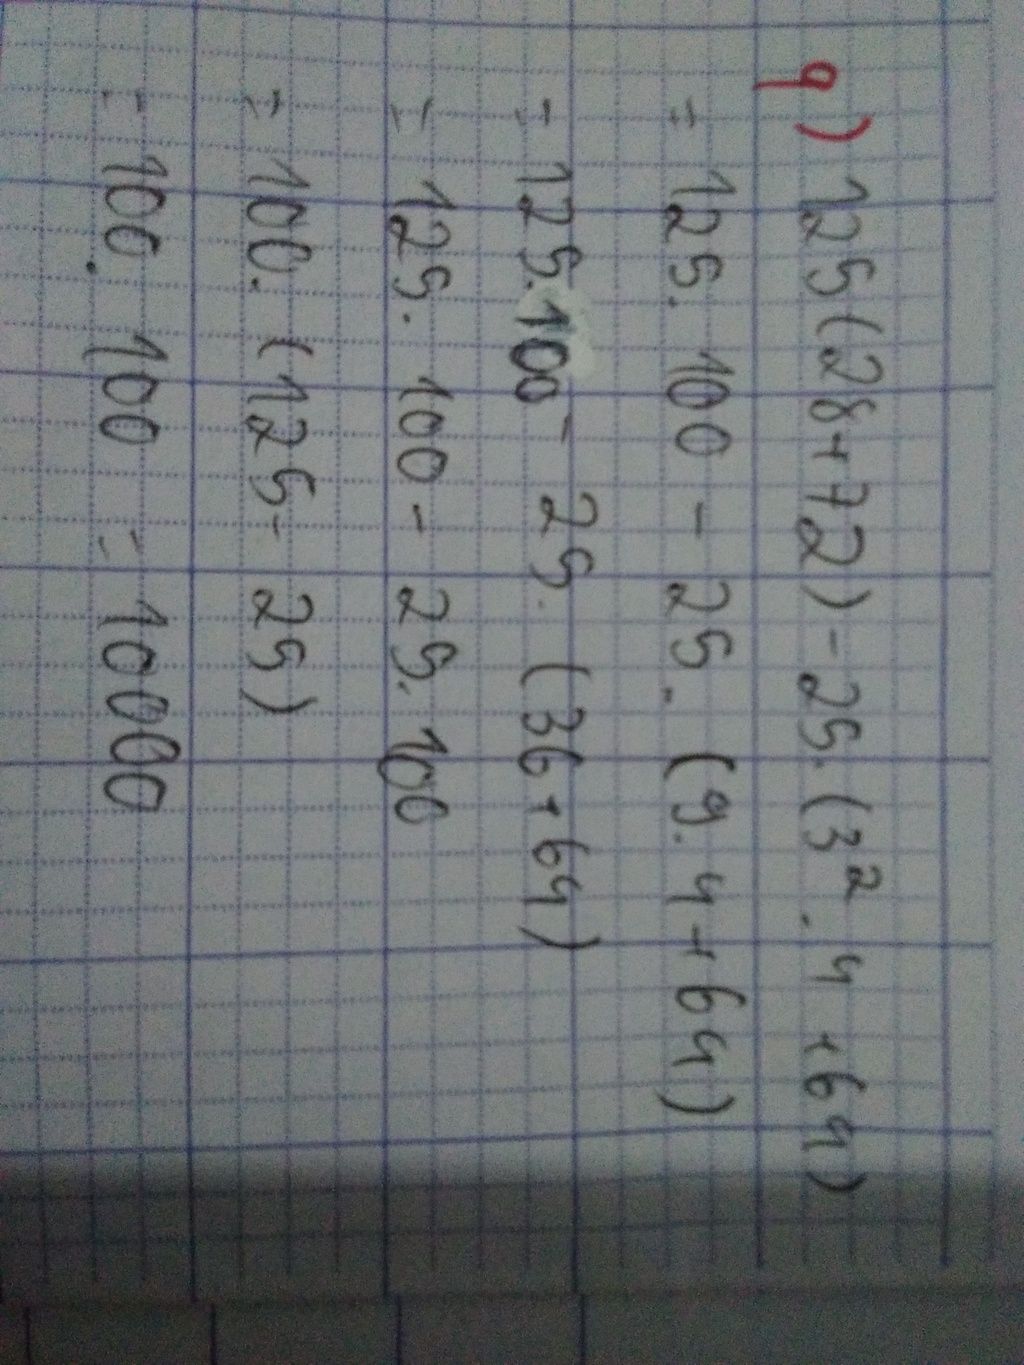 q) 125(28+72)-25.(3².4+64)
= 125.100-25.(9.4+64)
= 125.100-25.(36+64)
= 125.100-25.100
= 100.(125-25)
= 100.100 = 10000